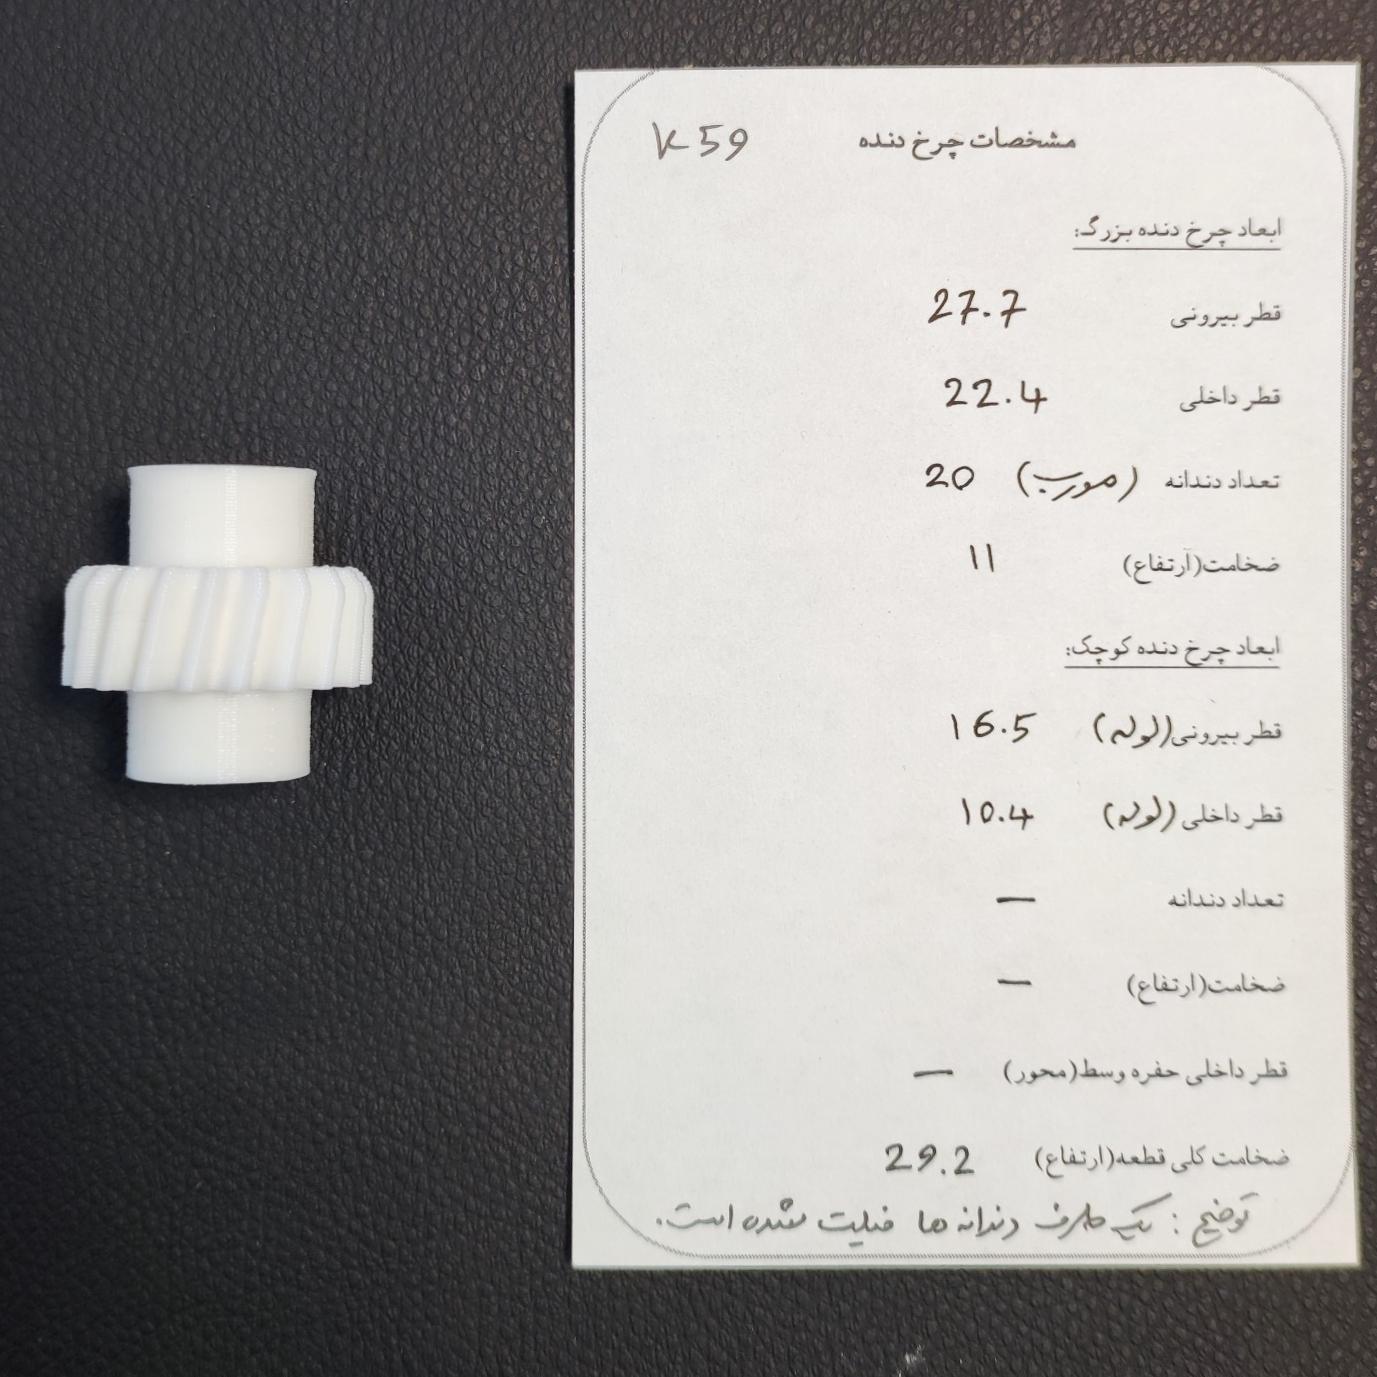 مشخصات چرخ دنده K59
ابعاد چرخ دنده بزرگ:
قطر بیرونی 27.7
قطر داخلی 22.4
تعداد دندانه (مورب) 20
ضخامت(ارتفاع) 11
ابعاد چرخ دنده کوچک:
قطر بیرونی(لوله) 16.5
قطر داخلی (لوله) 10.4
تعداد دندانه —
ضخامت(ارتفاع) —
قطر داخلی حفره وسط(محور) —
ضخامت کلی قطعه(ارتفاع) 29.2
توضیح : یک طرف دندانه ها فیلت شده است.